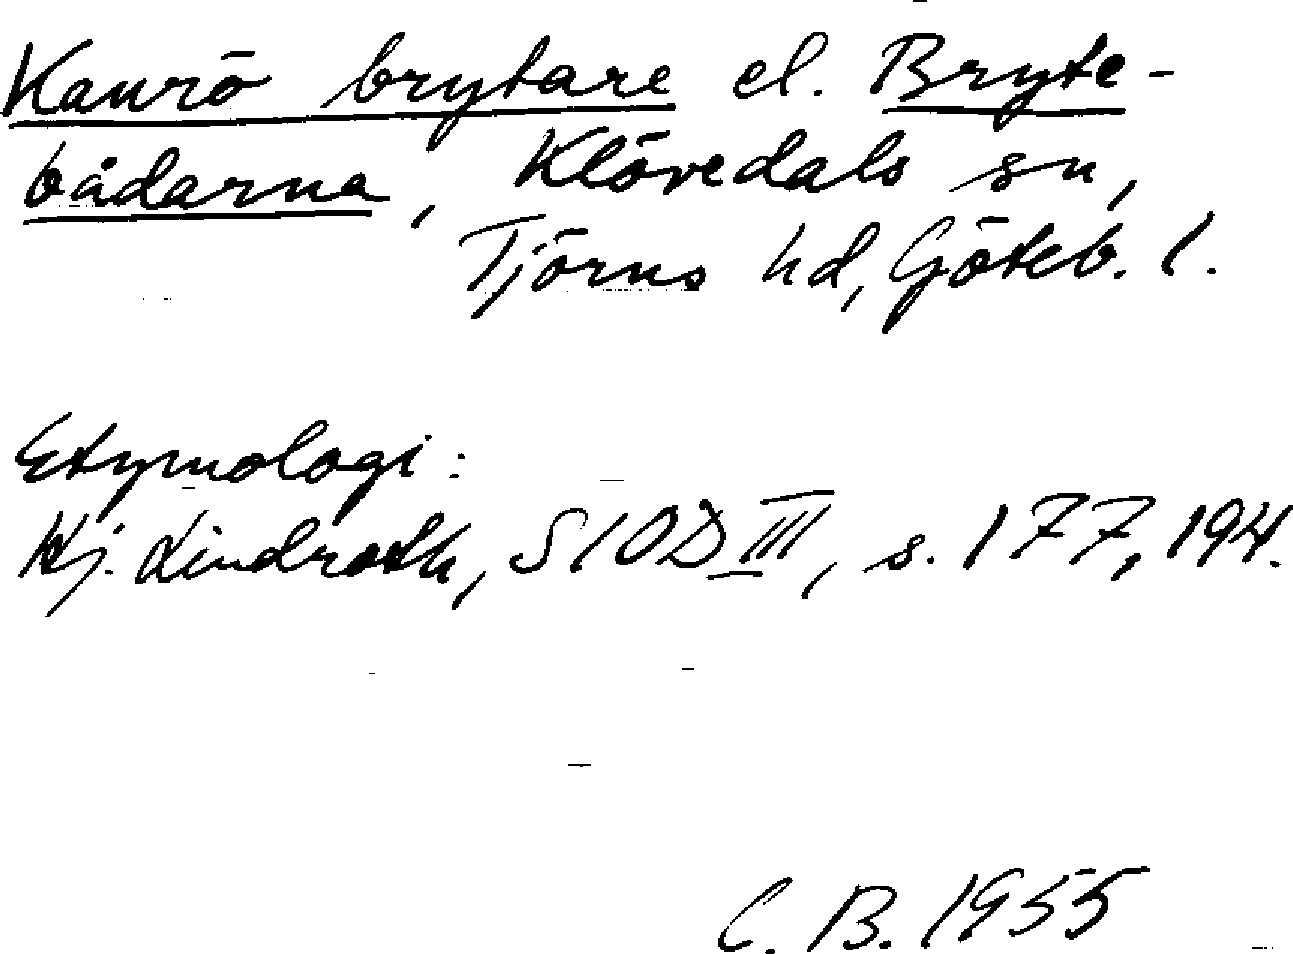 Kaurö brytare el. Bryte-
bådarna, Klövedals sn,
Tjörns hd, Göteb. l.
Etymologi:
Hj. Lindroth, SIOD III, s. 177, 194.
C. B. 1955